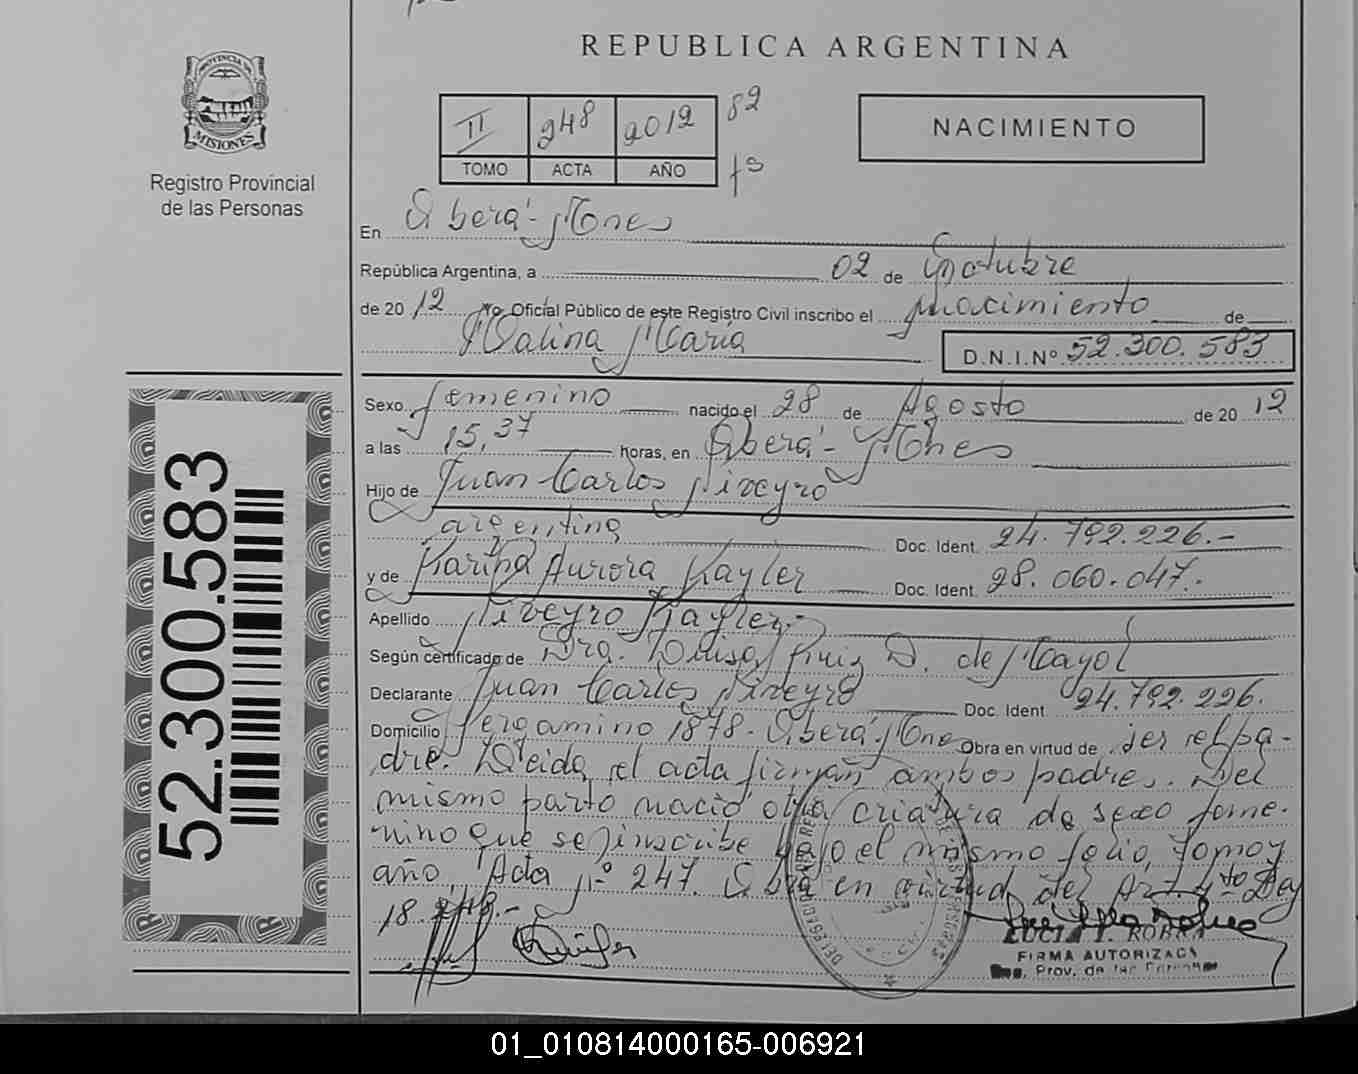 REPUBLICA ARGENTINA
PROVINCIA DE
MISIONES
Registro Provincial
de las Personas
II 248 2012 82
TOMO ACTA AÑO
NACIMIENTO
En Oberá - Mnes
República Argentina, a 02 de Octubre
de 2012 Yo, Oficial Público de este Registro Civil inscribo el nacimiento de
Malina María
D.N.I.Nº 52.300.583
Sexo femenino nacido el 28 de Agosto de 2012
a las 15,37 horas, en Oberá - Mnes
Hijo de Juan Carlos Piveyro
argentina Doc. Ident. 24.792.226.-
y de Karina Aurora Kayler Doc. Ident. 28.060.047.
Apellido Piveyro Kayler.-
Según certificado de Dra. Luisa Ruiz D. de Mayol
Declarante Juan Carlos Piveyro Doc. Ident. 24.792.226.
Domicilio Pergamino 1878 - Oberá - Mnes Obra en virtud de ser el pa-
dre. Leida el acta firman ambos padres. Del
mismo parto nació otra criatura de sexo feme-
nino que se inscribe bajo el mismo folio, tomo y
año, Acta Nº 247. Obra en virtud del Art. 4to Ley
18.248.-
FIRMA AUTORIZADA
Prov. de las Personas
52.300.583
01_010814000165-006921